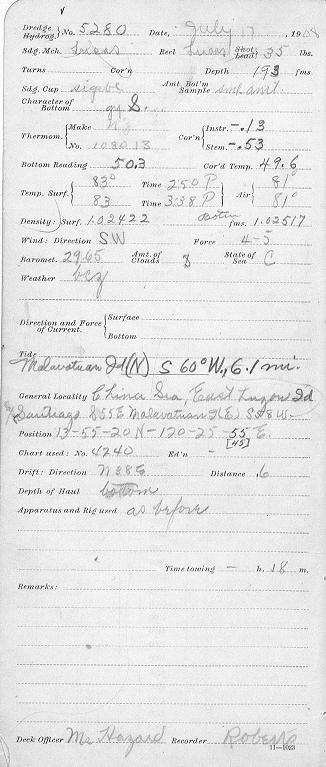 Dredge Hydrog. } No. 5280 Date, July 17, 1908
Sdg. Mch. Lucas Reel Lucas Shot Lead } 35 lbs.
Turns Cor'n Depth 193 fms.
Sdg. Cup sigsbee Amt. Bot'm Sample sml amt
Character of Bottom gy S.
Thermom. { Make NZ Cor'n { Instr. -.13
No. 108013 Stem. -.53
Bottom Reading 50.3 Cor'd Temp. 49.6
Temp. Surf. { 83° Time 2:50 P } Air { 81°
83 Time 3:38 P 81°
Density: Surf. 1.02422 Bottm fms. 1.02517
Wind: Direction SW Force 4-5
Baromet. 29.65 Amt. of Clouds 8 State of Sea C
Weather bcz
Direction and Force of Current. { Surface
Bottom
Tide
Malavatuan Id (N) S 60° W., 6.1 mi.
General Locality China Sea, East Luzon Id
Santiago S 55 E Malavatuan I (E) S 58 W.
Position 13-55-20 N - 120-25-55 E.
[45]
Chart used: No. 4240 Ed'n -
Drift: Direction N38E Distance .6
Depth of Haul bottom
Apparatus and Rig used as before
Time towing - h. 18 m.
Remarks:
Deck Officer Mc Hazard Recorder Roberts
11-1023